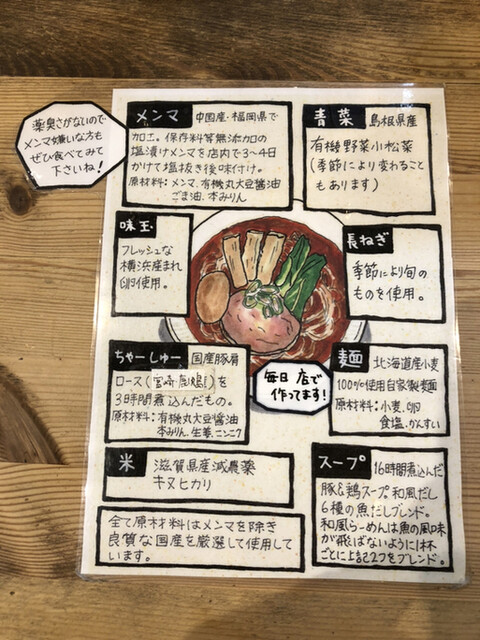 薬臭さがないので
メンマ嫌いな方も
ぜひ食べてみて
下さいね!
メンマ 中国産・福岡県で
加工。保存料等無添加の
塩漬けメンマを店内で3~4日
かけて塩抜き後味付け。
原材料:メンマ、有機丸大豆醤油
ごま油、本みりん
青菜 島根県産
有機野菜小松菜
(季節により変わること
もあります)
味玉
フレッシュな
横浜産まれ
卵使用。
長ねぎ
季節により旬の
ものを使用。
ちゃーしゅー 国産豚肩
ロース()を
3時間煮込んだもの。
原材料:有機丸大豆醤油
本みりん、生姜、ニンニク
毎日 店で
作ってます!
麺 北海道産小麦
100%使用自家製麺
原材料:小麦、卵
食塩、かんすい
米 滋賀県産減農薬
キヌヒカリ
スープ 16時間煮込んだ
豚&鶏スープ。和風だし
6種の魚だしブレンド。
和風らーめんは魚の風味
が飛ばないように1杯
ごとに上記2つをブレンド。
全て原材料はメンマを除き
良質な国産を厳選して使用して
います。